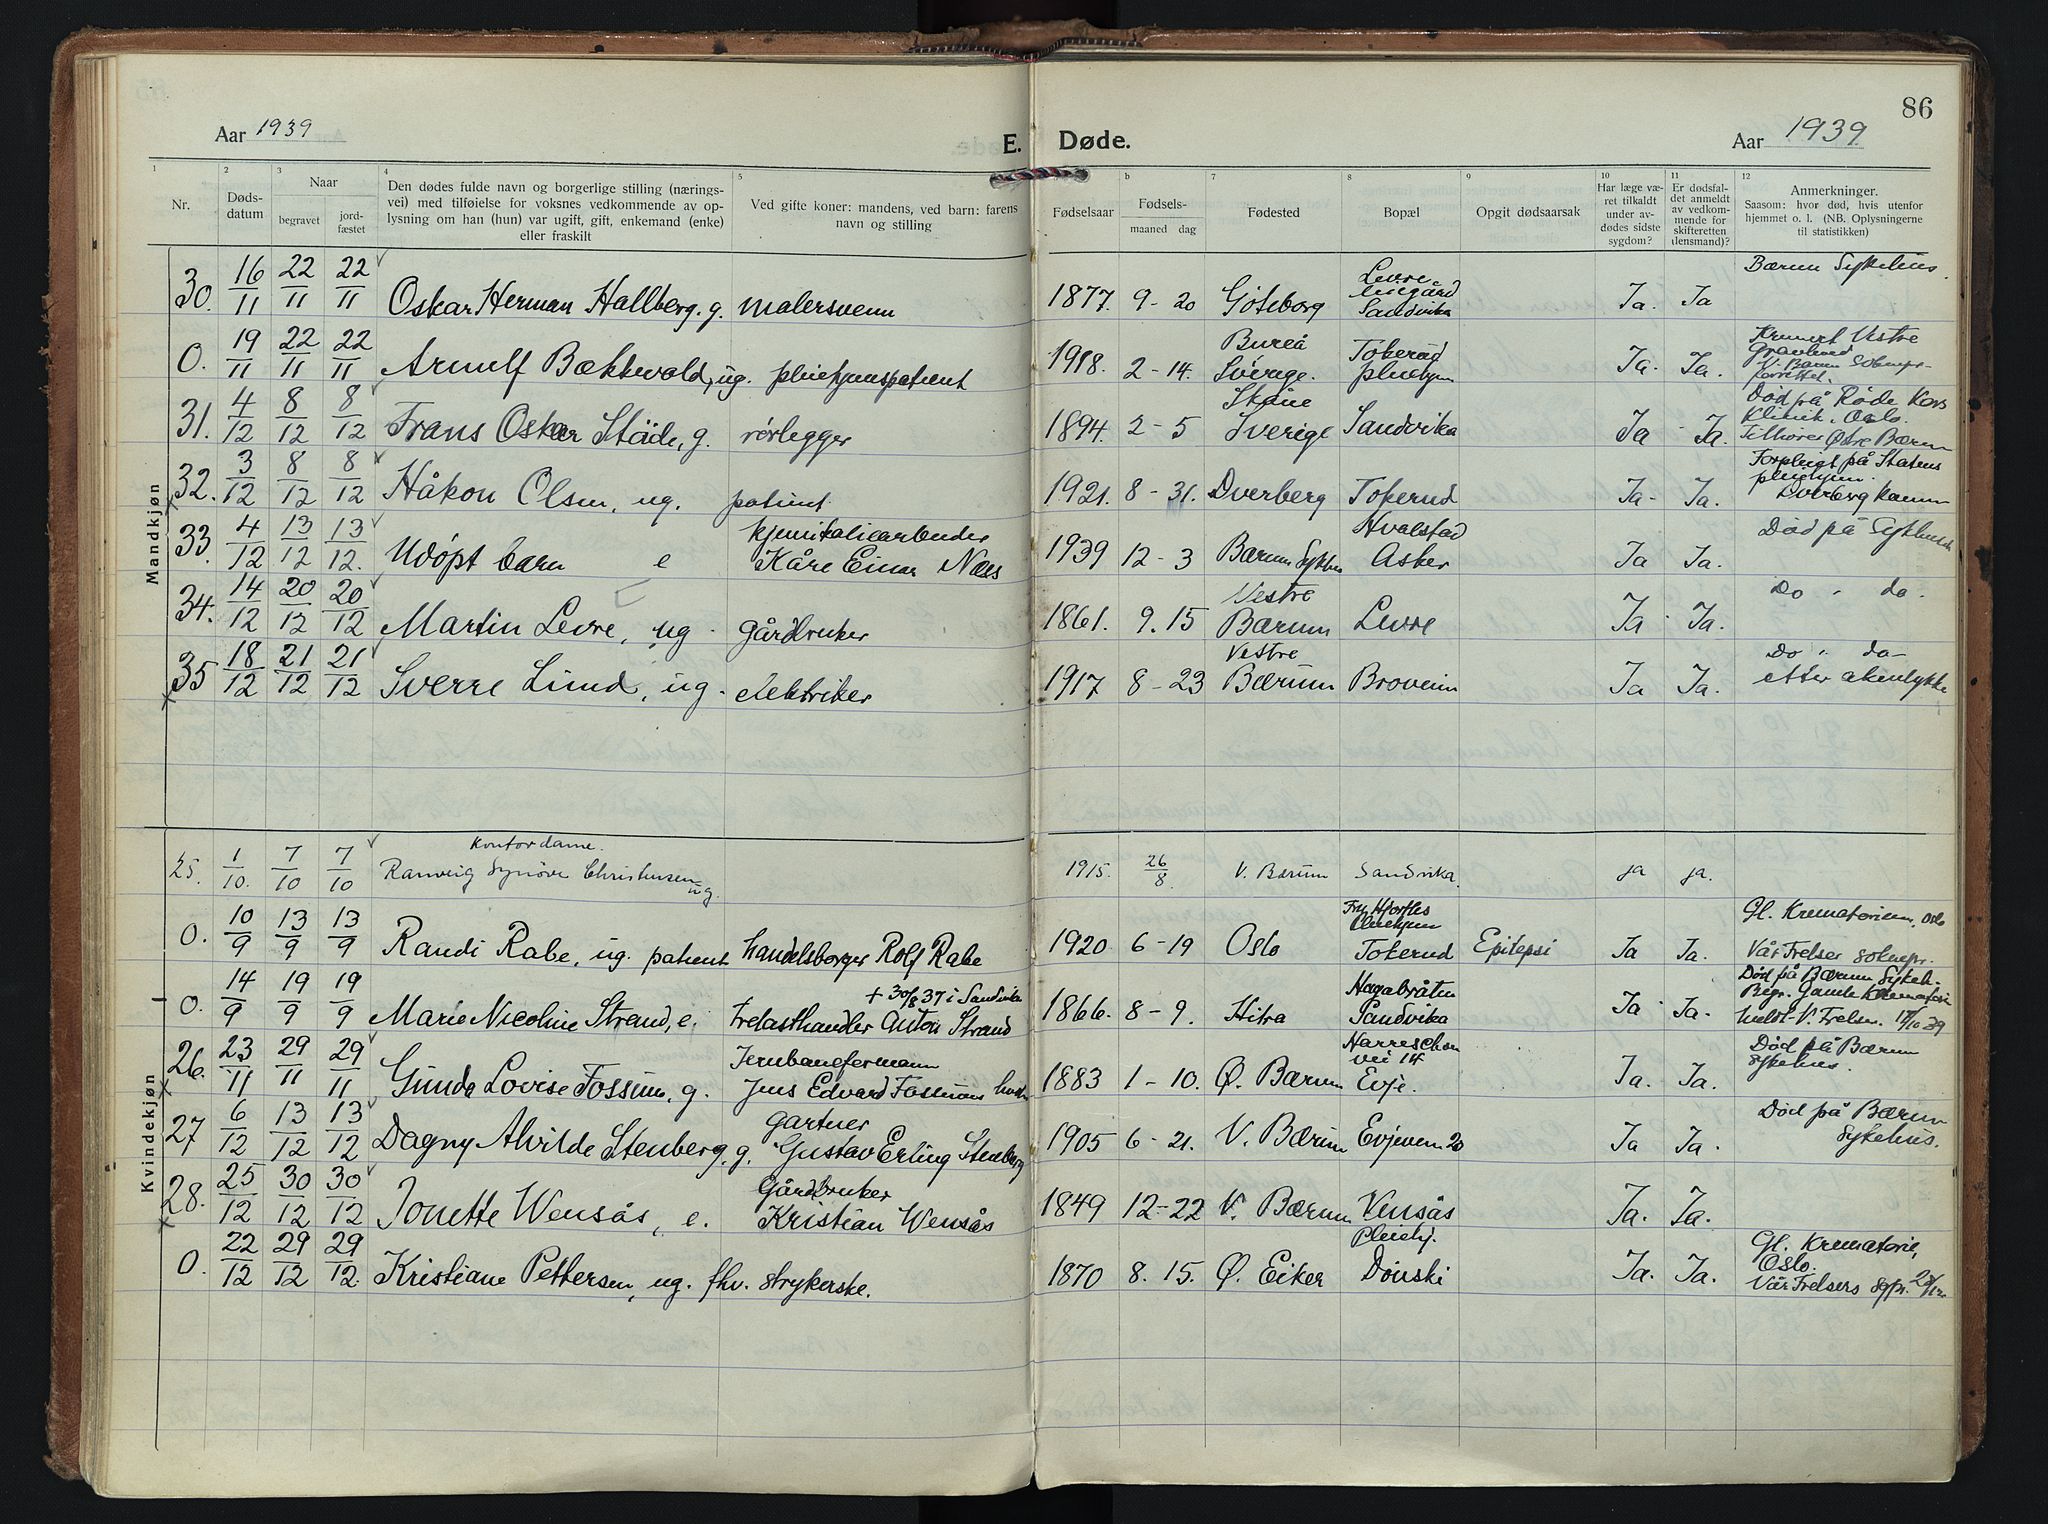 86
Aar 1939
E. Døde.
Aar 1939.
1 2 3 4 5 b 7 8 9 10 11 12
Nr.
Døds-
datum
Naar
begravet
jord-
fæstet
Den dødes fulde navn og borgerlige stilling (nærings-
vei) med tilføielse for voksnes vedkommende av op-
lysning om han (hun) var ugift, gift, enkemand (enke)
eller fraskilt
Ved gifte koner: mandens, ved barn: farens
navn og stilling
Fødselsaar
Fødsels-
maaned dag
Fødested
Bopæl
Opgit dødsaarsak
Har læge væ-
ret tilkaldt
under av-
dødes sidste
sygdom?
Er dødsfal-
det anmeldt
av vedkom-
mende for
skifteretten
(lensmand)?
Anmerkninger.
Saasom: hvor død, hvis utenfor
hjemmet o. l. (NB. Oplysningerne
til statistikken)
Mandkjøn
30. 16/11 22/11 22/11 Oskar Herman Hallberg. g. malersvenn 1877. 9-20 Göteborg Levre Sandvika Ja. Ja Bærum Sykehus.
0. 19/11 22/11 22/11 Arnulf Bækkvold, ug. pleiehjemspatient 1918. 2-14. Bureå Sverige. Tokerud pleiehjem Ja. Ja. Kremert Vestre Gravlund V. Bærum
31. 4/12 8/12 8/12 Frans Oskar Städe, g. rørlegger 1894. 2-5 Skåne Sverige Sandvika Ja Ja. Død på Røde Kors Klinik, Oslo. Tilhører Østre Bærum
32. 3/12 8/12 8/12 Håkon Olsen, ug. patient 1921. 8-31. Dverberg Tokerud Ja- Ja. Forpleigt på Statens pleiehjem. Dverberg komm
33. 4/12 13/12 13/12. Udøpt barn e kjemikaliearbeider Kåre Einar Næss 1939 12-3 Bærum Sykehus Hvalstad Asker Ja Ja. Død på Sykehuset
34. 14/12 20/12 20/12 Martin Levre, ug. gårdbruker 1861. 9.15 Vestre Bærum Levre Ja Ja. Do " do.
35 18/12 21/12 21/12 Sverre Lund, ug. elektriker 1917 8-23 Vestre Bærum Broveien Ja Ja. Do " do- etter akeulykke
Kvindekjøn
25. 1/10. 7/10 7/10 Kontordame. Ranveig Synøve Christensen ug. 1915. 26/8 V. Bærum Sandvika. ja ja.
0. 10/9 13/9 13/9 Randi Rabe, ug. patient handelsborger Rolf Rabe 1920 6-19 Oslo Pleiehjem Tokerud Epilepsi Ja Ja. Gl. Krematorium, Oslo Vår Frelser sokнepr.
0. 14/9 19/9 19/9 Marie Nicoline Strand, e. + 30/8 37 i Sandvika Trelasthandler Anton Strand 1866. 8-9. Hitra Hagabråten Sandvika Ja Ja. Død på Bærum Sykeh. Begr. Gamle Krematori V. Frelser.
26. 23/11 29/11 29/11 Gunda Lovise Fossum, g. Jernbaneformann Jens Edvard Fossums hustru 1883 1-10. Ø. Bærum vei 14 Evje. Ja. Ja. Død på Bærum sykehus.
27 6/12 13/12 13/12 Dagny Alvilde Stenberg, g. Gartner Gustav Erling Stenberg 1905 6-21. V. Bærum Evjeveien 20 Ja Ja. Død på Bærum Sykehus.
28. 25/12 30/12 30/12 Jonette Wensås, e. Gårdbruker Kristian Wensås 1849 12-22 V. Bærum Vensås Ja. Ja.
0. 22/12 29/12 29/12. Kristiane Pettersen, ug. fhv. strykerske. 1870 8.15. Ø. Eiker Pleiehj. Dønski Ja. Ja. Gl. Krematorie, Oslo. Vår Frelsers sgpr.